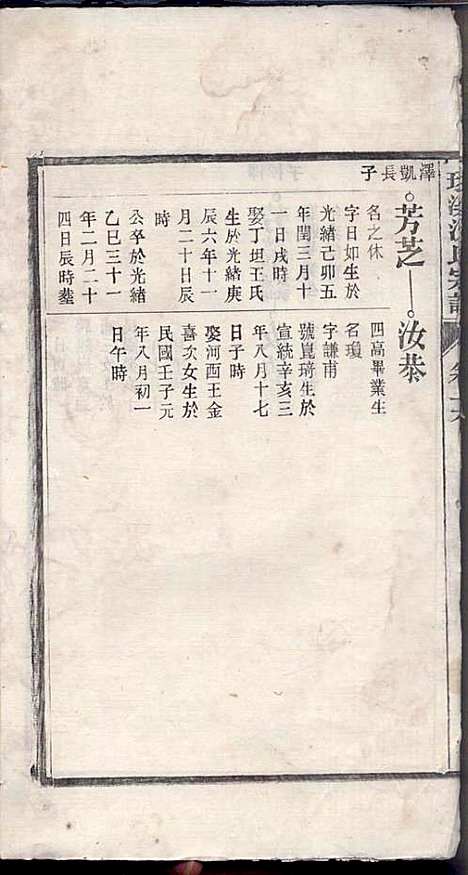 澤凱長子
芳芝
汝恭
名之休
字日如生於
光緒己卯五
年閏三月十
一日戌時
娶丁坦王氏
生於光緒庚
辰六年十一
月二十日辰
時
公卒於光緒
乙巳三十一
年二月二十
四日辰時塟
四高畢業生
名瓊
字謙甫
號崑琦生於
宣統辛亥三
年八月十七
日子時
娶河西王金
喜次女生於
民國壬子元
年八月初一
日午時
氏宗譜